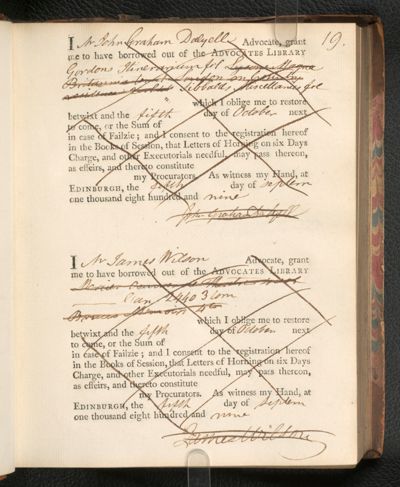 19.
I Mr John Graham Dalyell Advocate, grant
me to have borrowed out of the ADVOCATES LIBRARY
Gordons Itinerarium fol
Britannia
Sibbalds Miscellanies fol
which I oblige me to restore
betwixt and the fifth day of October next
to come, or the Sum of
in case of Failzie; and I consent to the registration hereof
in the Books of Session, that Letters of Horning on six Days
Charge, and other Executorials needful, may pass thereon,
as effeirs, and thereto constitute
my Procurators. As witness my Hand, at
EDINBURGH, the fifth day of Septem
one thousand eight hundred and nine
John Graham Dalyell
I Mr James Wilson Advocate, grant
me to have borrowed out of the ADVOCATES LIBRARY
3 tom
4to
which I oblige me to restore
betwixt and the fifth day of October next
to come, or the Sum of
in case of Failzie; and I consent to the registration hereof
in the Books of Session, that Letters of Horning on six Days
Charge, and other Executorials needful, may pass thereon,
as effeirs, and thereto constitute
my Procurators. As witness my Hand, at
EDINBURGH, the fifth day of Septem
one thousand eight hundred and nine
James Wilson